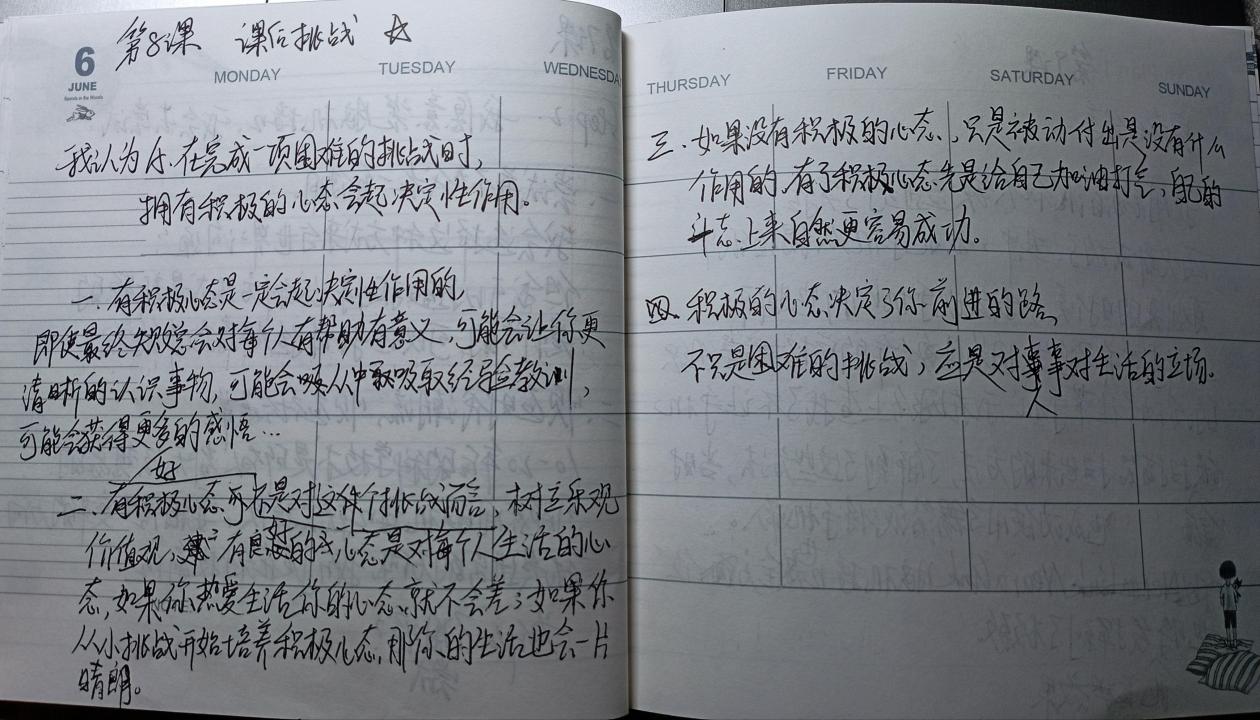 第8课 课后挑战 ☆
6
JUNE
MONDAY TUESDAY WEDNESDAY
我认为小 在完成一项困难的挑战时,
拥有积极的心态会起决定性作用。
一.有积极心态是一定会起决定性作用的,
即使最终失败总会对每个人有帮助有意义,可能会让你更
清晰的认识事物,可能会从中吸取经验教训,
可能会获得更多的感悟…
好
二.有积极心态可不是对这个挑战而言,树立乐观
价值观,有良好的心态是对每个人生活的心
态,如果你热爱生活你的心态就不会差;如果你
从小挑战开始培养积极心态,那你的生活也会一片
晴朗。
THURSDAY FRIDAY SATURDAY SUNDAY
三.如果没有积极的心态,只是被动付出是没有什么
作用的.有了积极心态先是给自己加油打气,自己的
斗志上来自然更容易成功。
四.积极的心态决定了你前进的路,
不只是困难的挑战,应是对事对生活的立场.
人